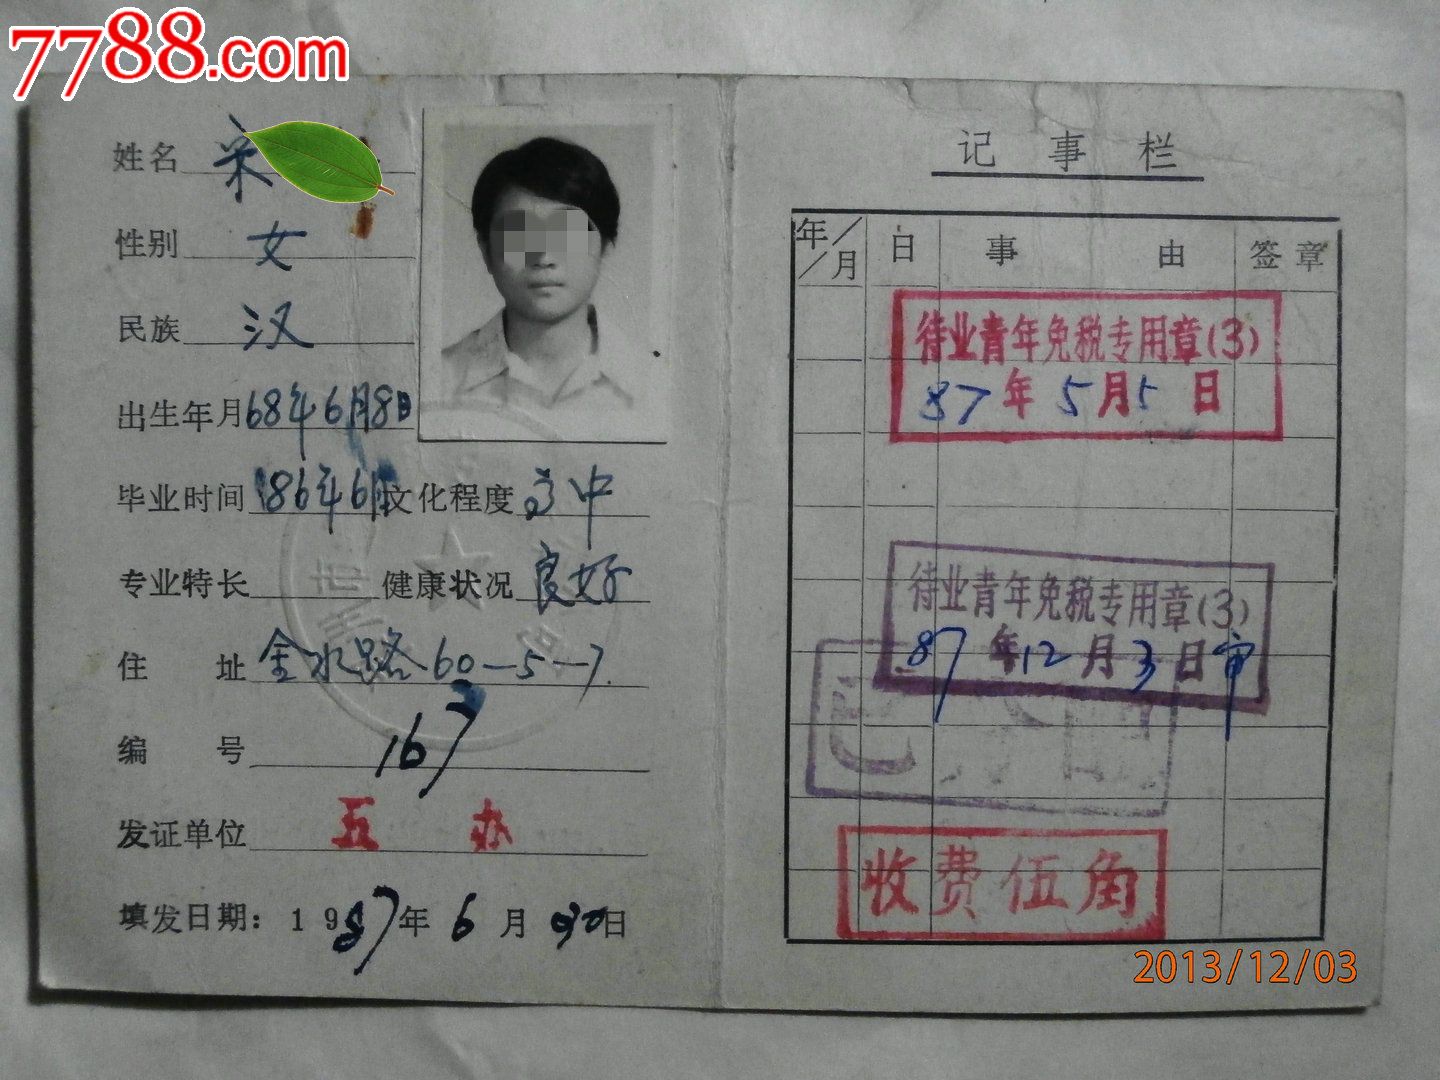 7788.com
姓名 宋
性别 女
民族 汉
出生年月 68年6月8日
毕业时间 86年6月 文化程度 高中
专业特长 健康状况 良好
住址 金水路60-5-7
编号 167
发证单位 五办
填发日期：1987年6月30日
记事栏
年/月 日 事由 签章
待业青年免税专用章(3)
87年5月5日
待业青年免税专用章(3)
87年12月3日审
收费伍角
2013/12/03